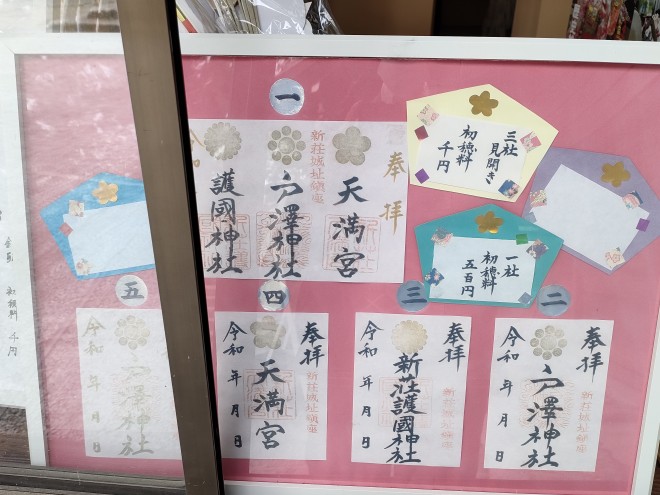 一
奉拝
天満宮
新荘城址鎮座
六澤神社
護國神社
令和
三社
見開き
初穂料
千円
一社
初穂料
五百円
二
奉拝
新荘城址鎮座
六澤神社
令和 年 月 日
三
奉拝
新荘城址鎮座
新荘護國神社
令和 年 月 日
四
奉拝
新荘城址鎮座
天満宮
令和 年 月 日
五
六澤神社
令和 年 月 日
初穂料 千円